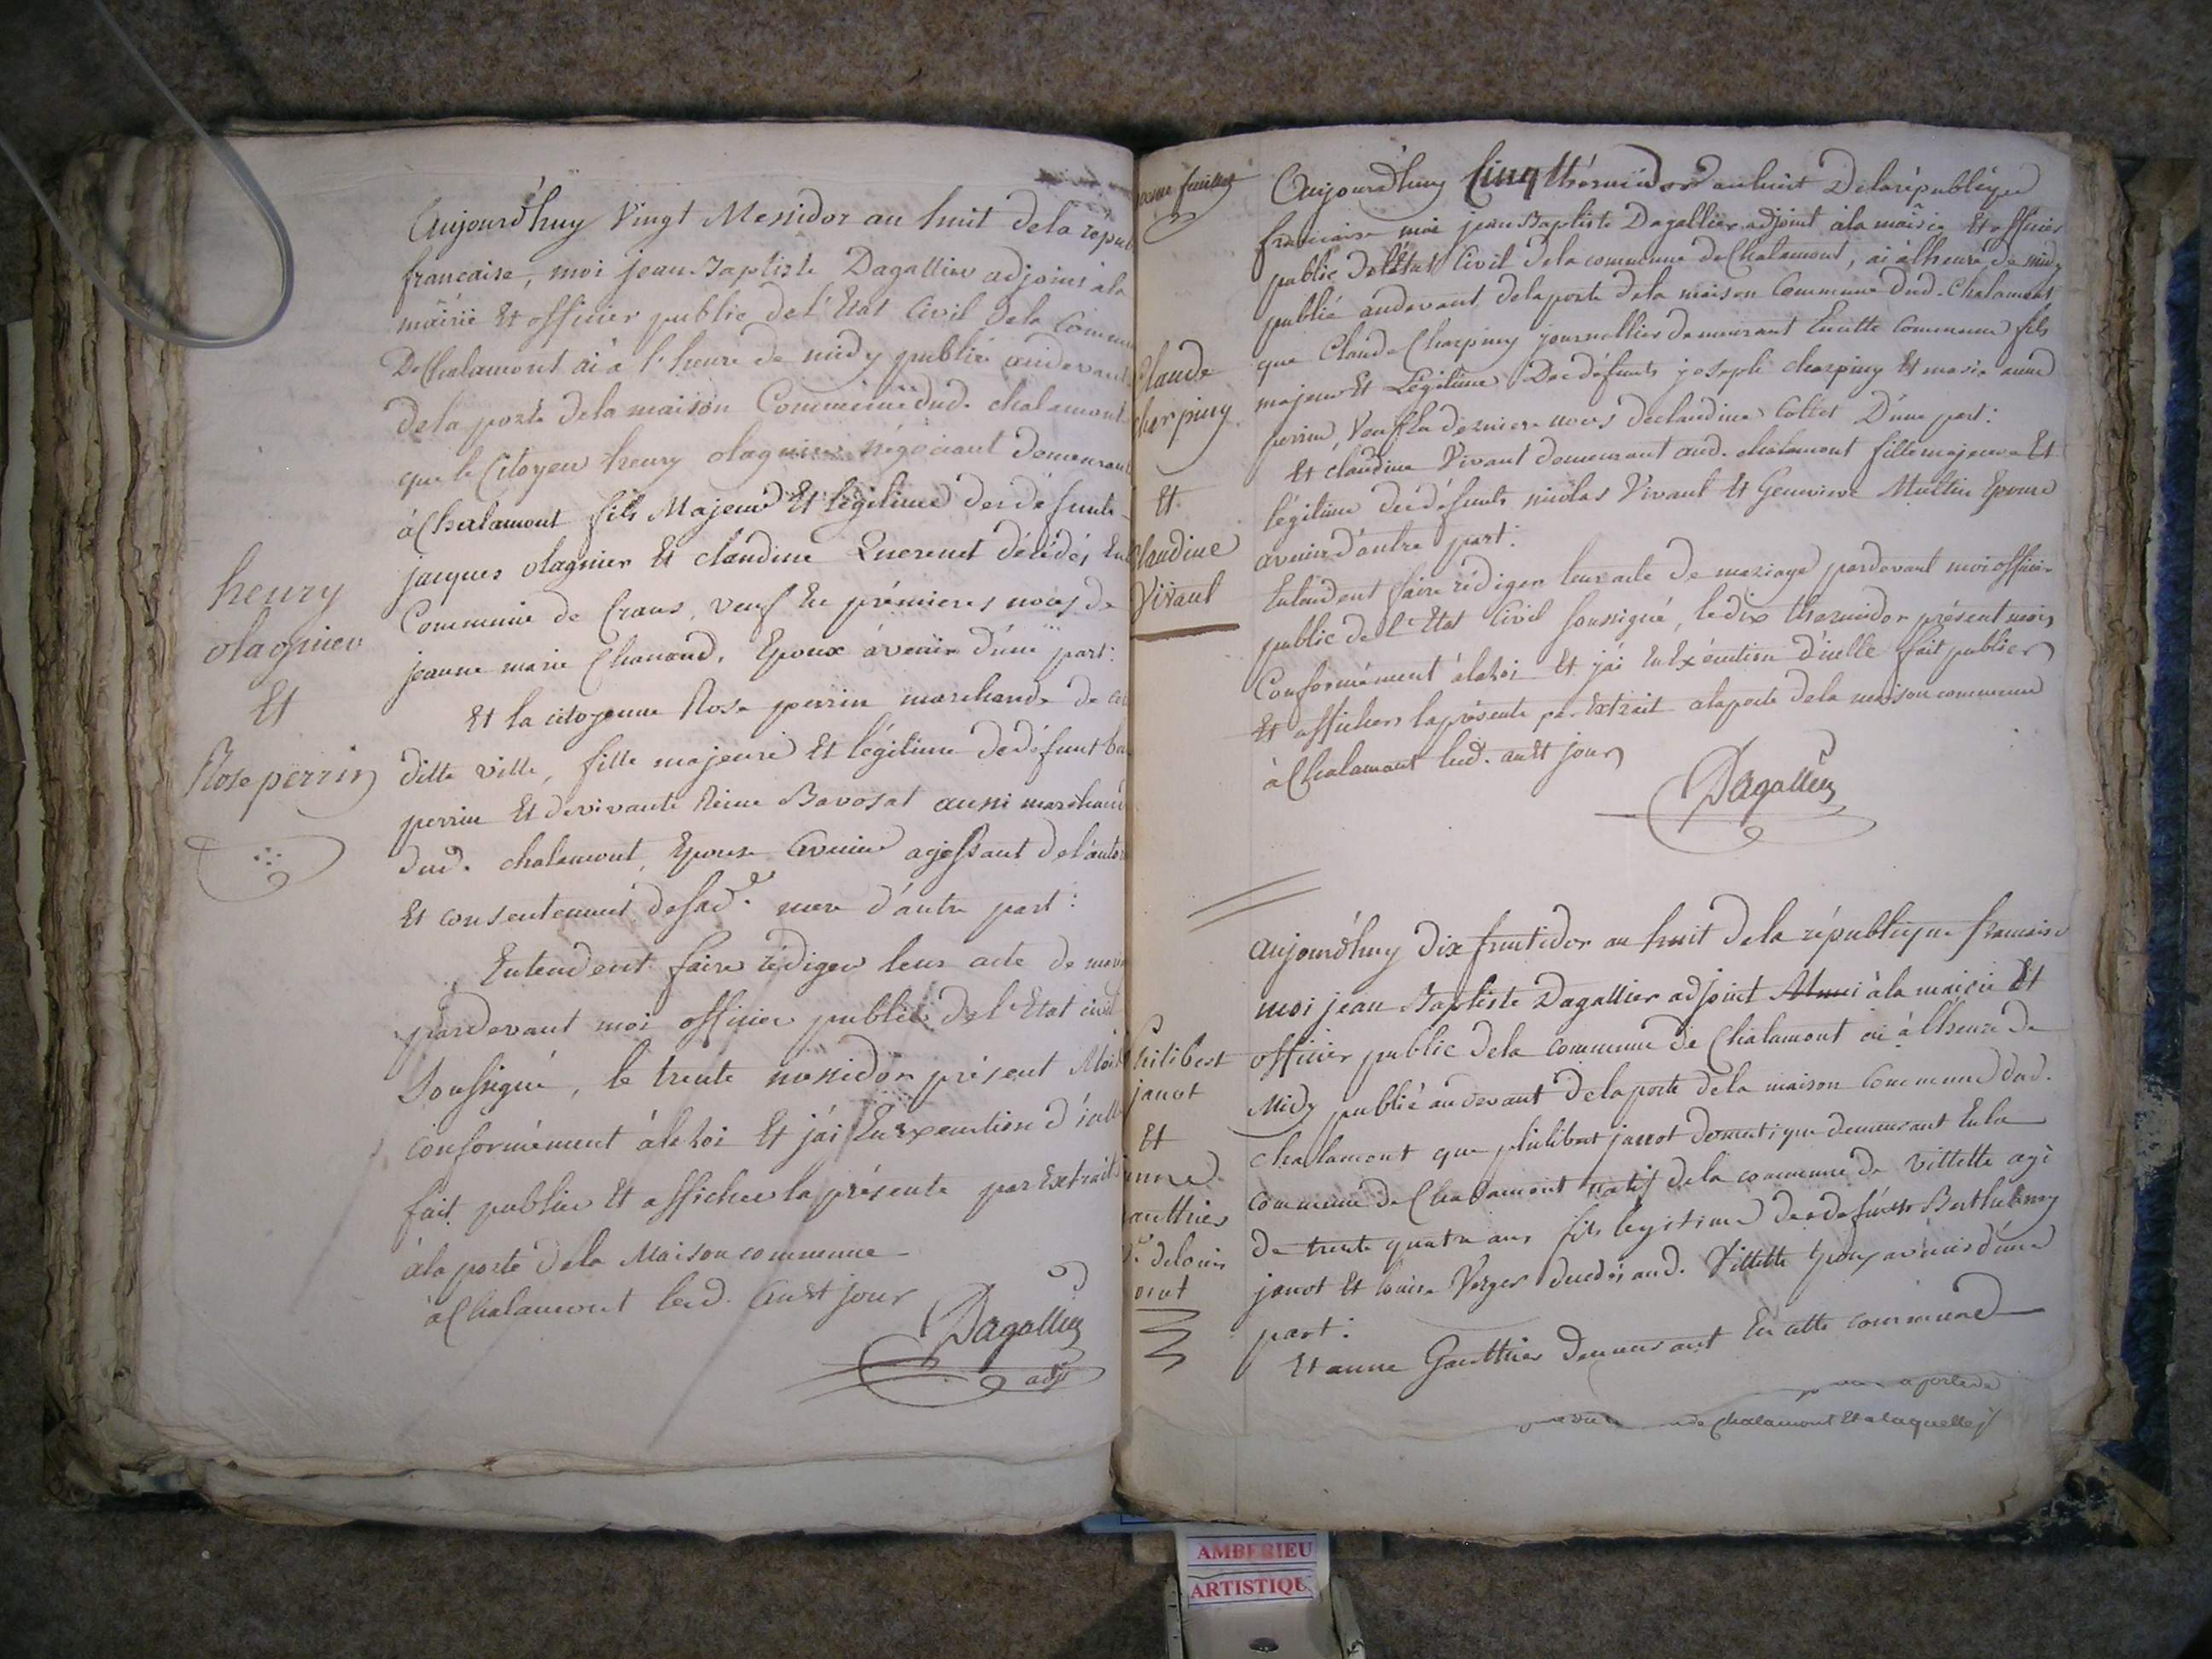 henry
olagnier
Et
Rose perrin
Aujourd'huy Vingt Messidor an huit dela repub
francaise, moi jean Baptiste Dagallier adjoint ala
mairie Et officier public de l'Etat Civil dela Commun
De Chalamont ai a l'heure de midy publié audevant
dela porte dela maison Commune dud. chalamont
que le Citoyen henry olagnier négociant demeurant
à Chalamont fils Majeur Et légitime des défunts
jacques olagnier Et claudine Querenet décédés En
Commune de Crans, veuf En prémieres noces de
jeanne marie Chanaud, Epoux avenir d'une part:
Et la citoyenne Rose perrin marchande de
ditte ville, fille majeure Et légitime de défunt
perrin Et de vivante Reine Bavosat aussi marchand
dud. chalamont, Epouse avenir agissant de l'autor
Et consentement de sad.e mere d'autre part:
Entendent faire rédiger leur acte de mari
pardevant moi officier public de l'Etat civil
Soussigné, le trente messidor présent Mois
conformément àla loi Et j'ai En Exécution d'icelle
fait publier Et afficher la présente par Extrait
àla porte dela Maison commune
à Chalamont led. an Et jour
Dagallier
adjt
feuillet
Claude
charpiny
Et
Claudine
Vivant
Aujourd'huy Cinq thérmidor an huit Dela république
francaise moi jean Baptiste Dagallier adjoint àla mairie Et officier
public de l'état Civil dela commune de Chalamont, ai àlheure de midy
publié audevant dela porte dela maison Commune dud. Chalamont
que Claude Charpiny journallier demeurant En cette Commune fils
majeur Et Légitime Des défunts joseph charpiny Et marie anne
perrin, Veuf En dernieres noces de claudine Collet D'une part:
Et claudine Vivant demeurant aud. chalamont fille majeure Et
légitime des défunts nicolas Vivant Et Genevieve Muttin Epouse
avenir d'autre part:
Entendent faire rédiger leur acte de mariage pardevant moi officier
public de l'Etat Civil soussigné, le dix thermidor présent mois
Conformément àla loi Et j'ai En Exécution d'icelle fait publier
Et afficher la présente par Extrait ala porte dela maison commune
à Chalamont led. an Et jour
Dagallier
philibert
janot
Et
anne
gauthier
delouis
aujourd'huy dix fructidor an huit dela république francaise
moi jean Baptiste Dagallier adjoint à la mairie Et
officier public dela commune de Chalamont ai à lheure de
Midy publié audevant dela porte dela maison Commune dud.
chalamont que philibert janot domestique demeurant En la
commune de Chalamont natif dela commune de villette agé
de trente quatre ans fils légitime des défunts Barthelemy
janot Et louise Verger décédés aud. Villette Epoux avenir d'une
part:
Et anne Gauthier demeurant En cette commune
a porte de
de chalamont Et a laquelle
AMBERIEU
ARTISTIQU